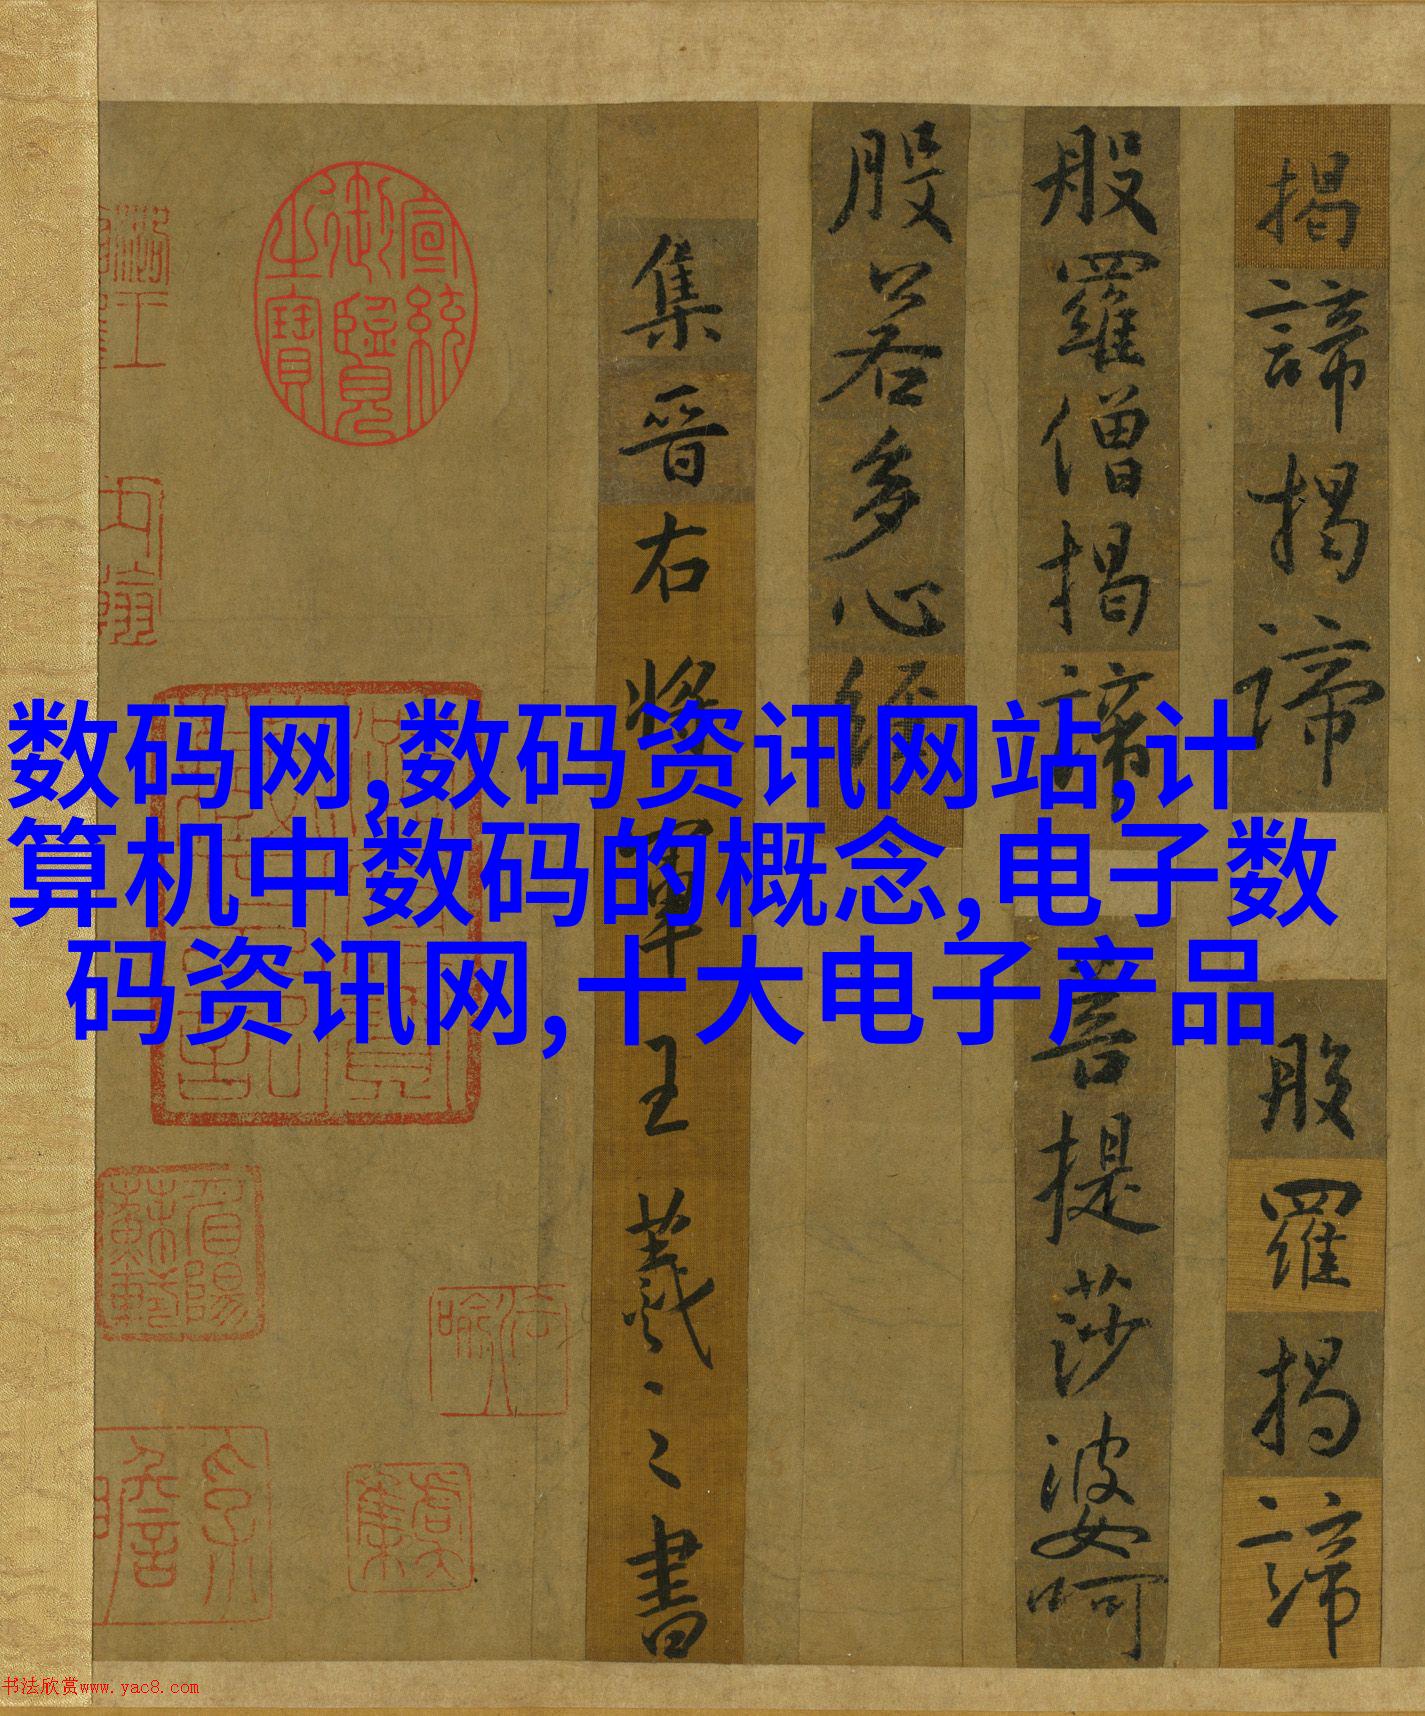 揭諦揭諦 般羅揭諦
般羅僧揭諦 菩提莎婆呵
般若多心經
集晉右將軍王羲之書
宣統御覽之寶
数码网,数码资讯网站,计
算机中数码的概念,电子数
码资讯网,十大电子产品
书法欣赏www.yac8.com